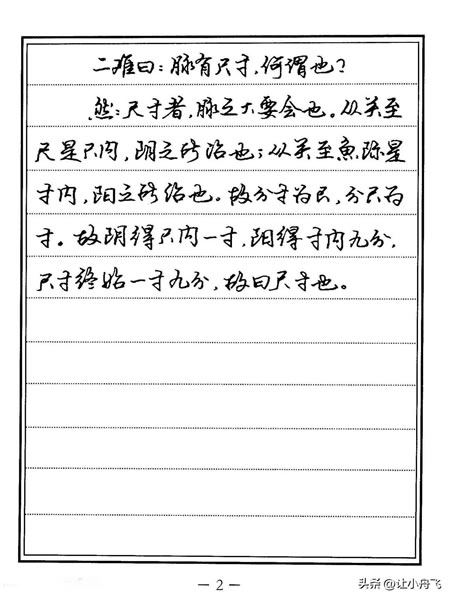 二难曰：脉有尺寸，何谓也？
然：尺寸者，脉之大要会也。从关至
尺是尺内，阴之所治也；从关至魚际是
寸内，阳之所治也。故分寸为尺，分尺为
寸。故阴得尺内一寸，阳得寸内九分，
尺寸终始一寸九分，故曰尺寸也。
— 2 —
头条 @让小丹飞